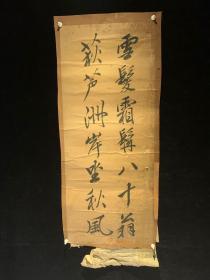 雪髮霜髯八十翁
荻芦洲岸坐秋風